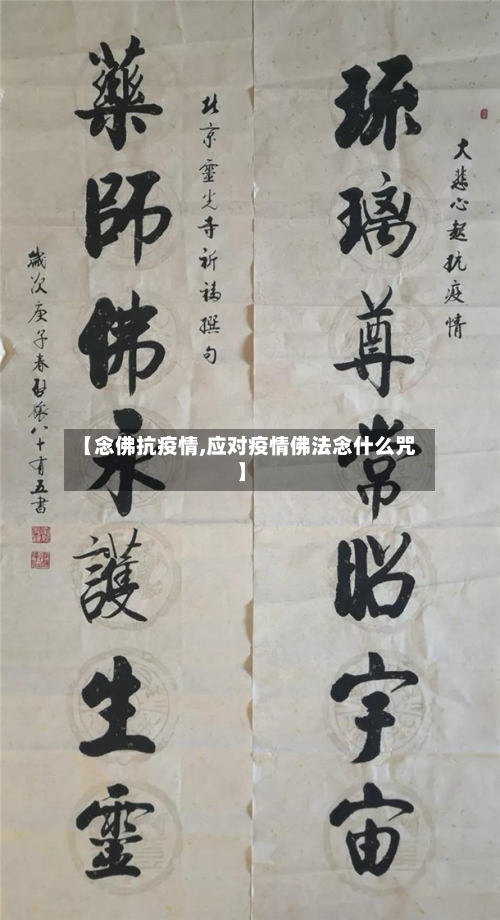 大悲心起抗疫情
琉璃尊常昭宇宙
北京靈光寺祈福撰句
藥師佛永護生靈
歲次庚子春 八十有五書
【念佛抗疫情,应对疫情佛法念什么咒
】